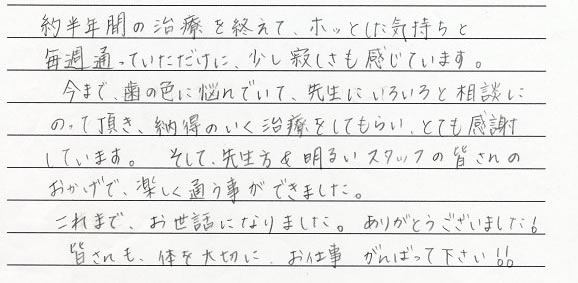 約半年間の治療を終えて、ホッとした気持ちと
毎週通っていただけに、少し寂しさも感じています。
今まで、歯の色に悩んでいて、先生にいろいろと相談に
のって頂き、納得のいく治療をしてもらい、とても感謝
しています。 そして、先生方&明るいスタッフの皆さんの
おかげで、楽しく通う事ができました。
これまで、お世話になりました。ありがとうございました!
皆さんも、体を大切に、お仕事 がんばって下さい!!